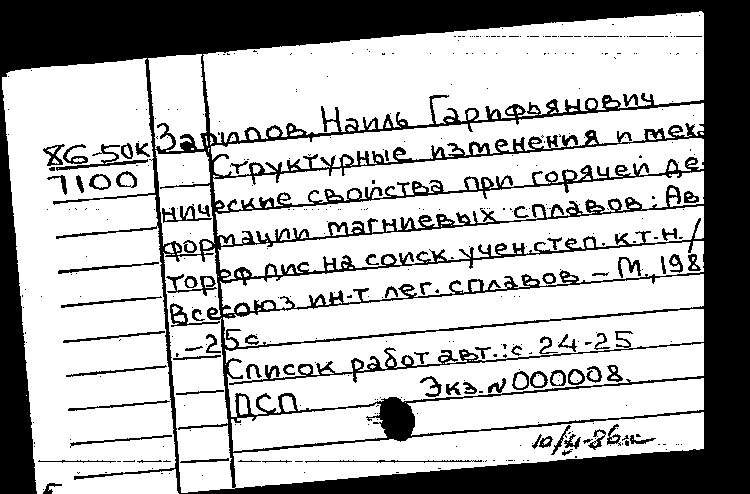 86-50к
7100
Зарипов, Наиль Гарифьянович
Структурные изменения и меха
нические свойства при горячей де-
формации магниевых сплавов: Ав
тореф. дис. на соиск. учен. степ. к.т.н. /
Всесоюз ин-т лег. сплавов. – М., 198
. – 25 с.
Список работ авт.: с. 24-25
ДСП. Экз. N 000008.